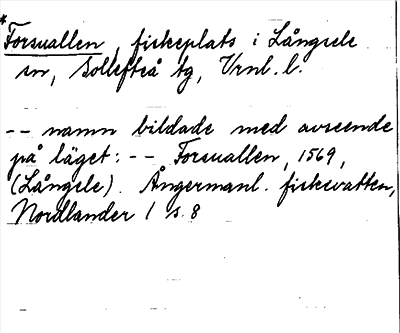 *Forsuallen, fiskeplats i Långsele
sn, Sollefteå tg, Vrnl. l.
-- namn bildade med avseende
på läget: -- Forsuallen, 1569,
(Långsele). Ångermanl. fiskevatten,
Nordlander 1 s. 8